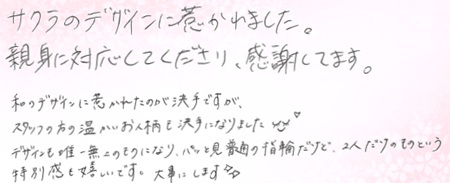 サクラのデザインに惹かれました。
親身に対応してくださり、感謝してます。
和のデザインに惹かれたのが決手ですが、
スタッフの方の温かいお人柄も決手になりました
デザインも唯一無二のものになり、パッと見普通の指輪だけど、2人だけのものという
特別感も嬉しいです。大事にします